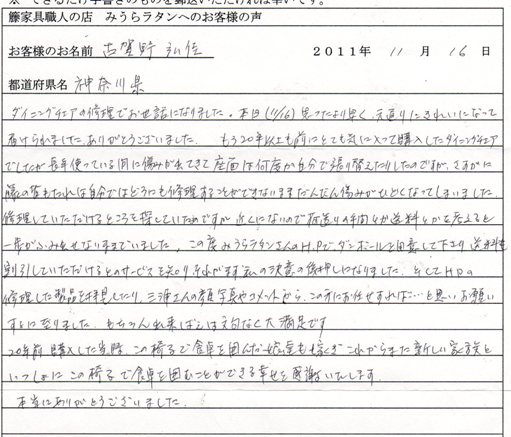 ※ できるだけ手書きのものを郵送いただければ幸いです。
籐家具職人の店 みうらラタンへのお客様の声
お客様のお名前 古賀野 弘佳 2011年 11月 16日
都道府県名 神奈川県
ダイニングチェアの修理でお世話になりました。本日(11/16)思ったより早く、元通りにきれいになって
届けられました。ありがとうございました。 もう20年以上も前にとても気に入って購入したダイニングチェア
でしたが長年使っている間に傷みが出てきて座面は何度か自分で張り替えたりしたのですが、さすがに
籐の背もたれは自分ではどうにも修理することができないままだんだん傷みがひどくなってしまいました
修理していただけるところを探していたのですが 近くにないので荷造りの手間とか送料とかを考えると
一歩がふみ出せないままでいました。この度みうらラタンさんのH.Pでダンボールを用意して下さり送料も
割引していただけるとのサービスを知り それがまず私の決意の後押しになりました。そしてH.Pの
修理した製品を拝見したり、三浦さんの顔写真やコメントから、この方にお任せすれば…と思いお願い
するに至りました。もちろん出来ばえは文句なく大満足です
20年前購入した当時、この椅子で食卓を囲んだ娘達も嫁ぎ これからまた新しい家族と
いっしょに この椅子で食卓を囲むことができる幸せを感謝いたします
本当にありがとうございました。